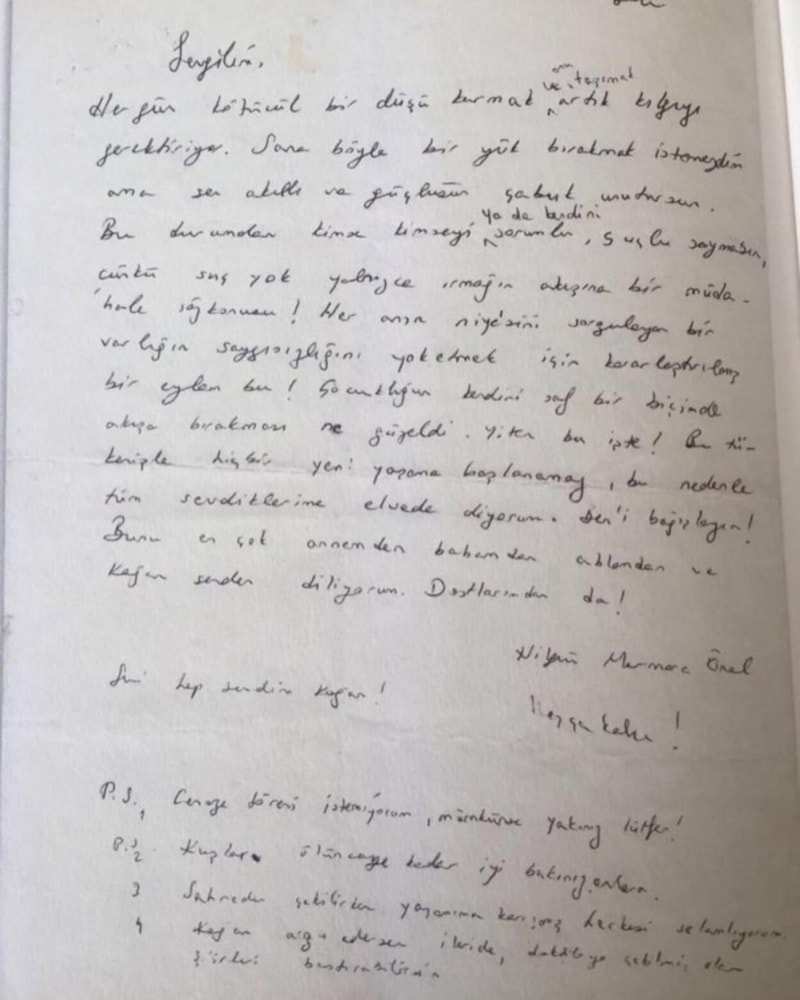 Sevgilim,
ve onu taşımak
Her gün kötücül bir düşü kurmak artık kılgıyı
gerektiriyor. Sana böyle bir yük bırakmak istemezdim
ama sen akıllı ve güçlüsün çabuk unutursun.
ya da kendini
Bu durumdan kimse kimseyi sorumlu, suçlu saymasın,
çünkü suç yok yalnızca ırmağın akışına bir müda-
hale sözkonusu! Her anın niye'sini sorgulayan bir
varlığın saygısızlığını yoketmek için kararlaştırılmış
bir eylem bu! Çocukluğun kendini saf bir biçimde
akışa bırakması ne güzeldi. Yiten bu işte! Bu tü-
kenişle hiçbir yeni yaşama başlanamaz, bu nedenle
tüm sevdiklerime elveda diyorum. Ben'i bağışlayın!
Bunu en çok annemden babamdan ablamdan ve
Kağan senden diliyorum. Dostlarımdan da!
Nilgün Marmara Önal
Seni hep sevdim Kağan!
Hoşçakalın!
P.S.1 Cenaze töreni istemiyorum, mümkünse yakınız lütfen!
P.S.2 Kuşlara ölünceye kadar iyi bakınız onlara.
3 Sahneden çekilirken yaşamıma karışmış herkesi selamlıyorum.
4 Kağan arzu edersen ileride, daktiloya çekilmiş olan
şiirleri bastırabilirsin